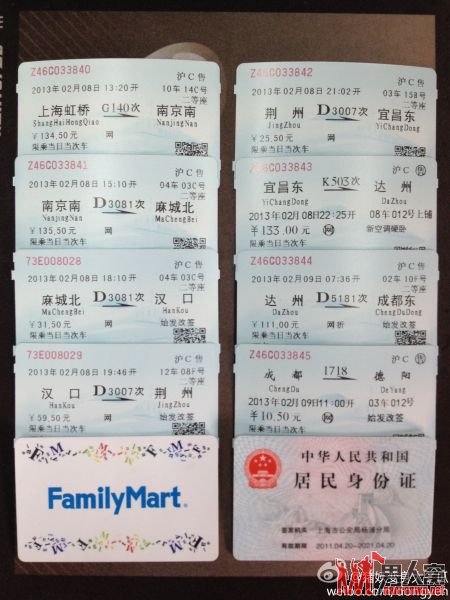 Z46C033840
沪C售
2013年02月08日13:20开 10车14C号
二等座
上海虹桥 G140次 南京南
ShangHaiHongQiao NanjingNan
￥134.50元 网
限乘当日当次车
Z46C033841
沪C售
2013年02月08日15:10开 04车03C号
二等座
南京南 D3081次 麻城北
NanjingNan MaChengBei
￥135.50元 网
限乘当日当次车
73E008028
沪C售
2013年02月08日18:10开 04车03C号
二等座
麻城北 D3081次 汉口
MaChengBei HanKou
￥31.50元 网 始发改签
限乘当日当次车
73E008029
沪C售
2013年02月08日19:46开 12车08F号
二等座
汉口 D3007次 荆州
HanKou JingZhou
￥59.50元 网 始发改签
限乘当日当次车
FamilyMart
Z46C033842
沪C售
2013年02月08日21:02开 03车15B号
二等座
荆州 D3007次 宜昌东
JingZhou YiChangDong
￥25.50元 网
限乘当日当次车
Z46C033843
沪C售
宜昌东 K503次 达州
YiChangDong DaZhou
2013年02月08日22:25开 08车012号上铺
￥133.00元 网 新空调硬卧
限乘当日当次车
Z46C033844
沪C售
2013年02月09日07:36开 02车10F号
二等座
达州 D5181次 成都东
DaZhou ChengDuDong
￥111.00元 网折 始发改签
限乘当日当次车
Z46C033845
沪C售
成都 1718 德阳
ChengDu DeYang
2013年02月09日11:00开 03车012号
￥10.50元 网 始发改签
限乘当日当次车
中华人民共和国
居民身份证
签发机关 上海市公安局杨浦分局
有效期限 2011.04.20-2021.04.20